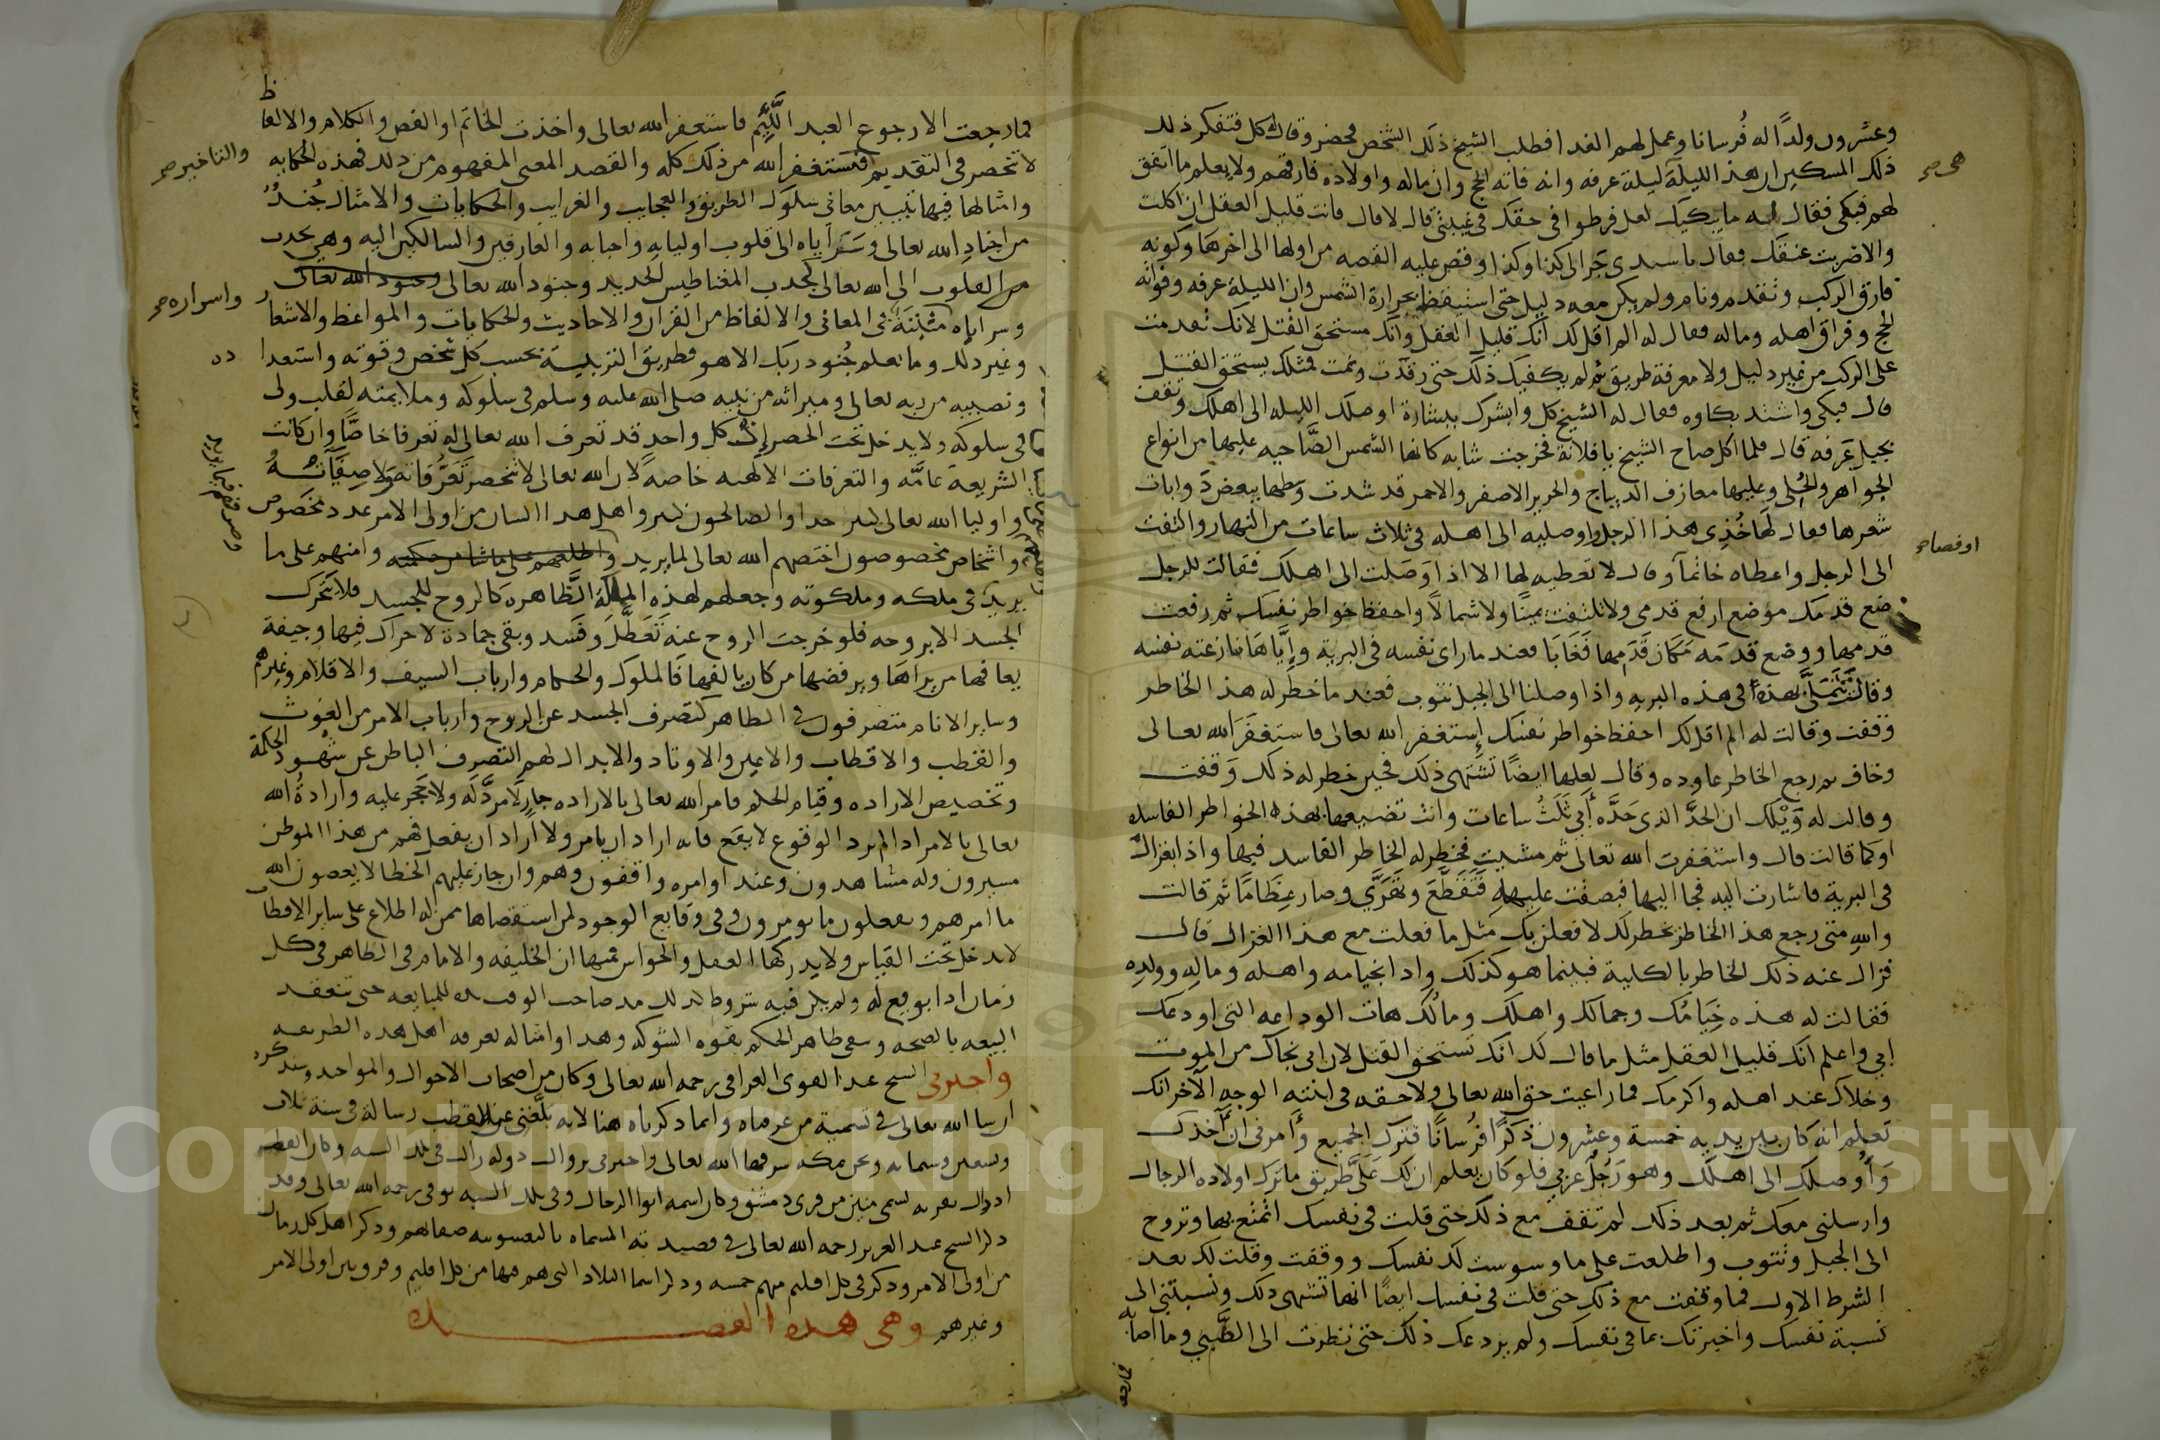 وعشرون ولدًا له فُرسانا وعمل لهم الغدا فطلب الشيخ ذلك الشخص فحضر وقال له كل فتفكر ذلك
ذلك المسكين ان هذا الليلة ليلة عرفه وانه فاته الحج وان ماله واولاده فارقهم ولا يعلم ما اتفق
لهم فبكى فقال له ما يبكيك لعل فرطوا في حقك في غيبتي قال لا قال فانت قليل العقل ان اكلت
والا ضربت عنقك فقال يا سيدي جرا لي كذا وكذا وقص عليه القصه من اولها الى اخرها وكونه
فارق الركب وتقدم ونام ولم يكن معه دليل حتى استيقظ بحرارة الشمس وان الليلة عرفه وفواته
الحج وفراق اهله وماله فقال له الم اقل لك انك قليل العقل وانك مستحق القتل لانك تقدمت
على الركب من غير دليل ولا معرفة طريق ثم لم يكفيك ذلك حتى رقدت ونمت فمثلك يستحق القتل
قال فبكى واشتد بكاوه فقال له الشيخ كل وابشرك ببشارة اوصلك الليله الى اهلك وتقف
بجبل عرفه قال فلما اكل صاح الشيخ يا فلانة فخرجت شابه كانها الشمس الضَّاحيه عليها من انواع
الجواهر والحُلي وعليها معازف الديباج والحرير الاصفر والاحمر قد شدت وسطها ببعض ذوابات
شعرها فقال لها خُذي هذا الرجل واوصليه الى اهله في ثلاث ساعات من النهار والتفت
الى الرجل واعطاه خاتمًا وقال لا تعطيه لها الا اذا وَصَلت الى اهلك فقالت للرجل
ضع قدمك موضع ارفع قدمي ولا تلتفت يمينًا ولا شمالاً واحفظ خواطر نفسك ثم رفعت
قدمها ووضع قدمه مَكان قَدَمِها فَغَابَا فعند ما راى نفسه في البرية وإيَّاها نازعته نفسه
وقالت نتملَّى بهذه في هذه البريه واذا وصلنا الى الجبل نتوب فعند ما خطر له هذا الخاطر
وقفت وقالت له الم اقل لك احفظ خواطر نفسك إستغفر الله تعالى فاستغفَرَ الله تعالى
وخاف ثم رجع الخاطر عاوده وقال لعلها ايضًا تشتهى ذلك فحين خطر له ذلك وَقفت
وقالت له وَيْلك ان الحدَّ الذى حَدَّه أبي ثَلَثُ ساعات وانت تضيعها بهذه الخواطر الفاسده
او كما قالت قال واستغفرت الله تعالى ثم مشيت فخطر له الخاطر الفاسد فيها واذا بغزال
في البرية فاشارت اليه فجا اليها فبصقت عليه فَتَقَطَّعَ وتَهَرَّى وصار عِظَامًا ثم قالت
واللهِ متى رجع هذا الخاطر يخطر لك لافعلن بك مَثل ما فعلت مع هذا الغزال قال
فزال عنه ذلك الخاطر بالكلية فبينما هو كذلك واذا بخيامه واهله ومالِه وولدِه
فقالت له هذه خِيَامُك وجمالك واهلك ومالُك هات الوداعه التى اودعك
ابي واعلم انك قليل العقل مثل ما قال لك انك تستحق القتل لان ابي نجاك من الموت
وخلاك عند اهله واكرمك فما راعيت حق الله تعالى ولا حقه في ابنته الوجه الآخر انك
تعلم انه كان بين يديه خمسة وعشرون ذكرًا فُرسانًا فترك الجميع وأمرني ان آخذك
وَأُوصلك الى اهلك وهو رَجُلٌ عربي فلو كان يعلم ان لك عَلَىَّ طريق ما ترك اولاده الرجال
وارسلني معك ثم بعد ذلك لم تقف مع ذلك حتى قلت في نفسك اتمتع بها وتروح
الى الجبل ونتوب واطلعت على ما وسوست لك نفسك ووقفت وقلت لك بعد
الشرط الاول فما وقفت مع ذلك حتى قلت في نفسك ايضًا انها تشتهى ذلك ونسبتني الى
نسبة نفسك واخبرتك بما في نفسك ولم يردعك ذلك حتى نظرت الى الظَّبي وما اصابه
فما رجعت
اوقصا صح
فما رجعت الا رجوع العبد اللَّئِيم فاستغفر الله تعالى واخذت الخاتم او القص والكلام والالفاظ
لا تخصر في التقديم فنستغفر الله من ذلك كله والقصد المعنى المفهوم من ذلك فهذه الحكايه
والتاخير صح
وامثالها فيها تبيين معانى سلوك الطريق والعجايب والغرايب والحكايات والامثال جُندٌ
من اجناد الله تعالى وسَرَايَاه الى قلوب اوليايه واحبابه والعارفين والسالكين اليه وهي تجذب
من القلوب الى الله تعالى كجذب المغناطيس الحديد وجنود الله تعالى وجنود الله تعالى
واسراره صح
وسراياه مثبتة في المعاني والالفاظ من القران والاحاديث والحكايات والمواعظ والاشعار
وغير ذلك وما يعلم جُنود ربك الا هو فطريق التربية بحسب كل شخص وقوته واستعدا
ده
ونصيبه من ربه تعالى وميراثه من نبيه صلى الله عليه وسلم في سلوكه وملايمته لقلب ولى
في سلوكه ولا يدخل تحت الحصر لان كل واحد قد تعرف الله تعالى له تعرفا خاصًّا وان كانت
الشريعة عامَّه والتعرفات الالهيه خاصه لان الله تعالى لا تنحصر تَعَرُّفاته ولا صِفَاته
واوليا الله تعالى كثير جدا والصالحون كثير واهل هذا الشان من اولى الامر عدد مخصوص
واشخاص مخصوصون اختصهم الله تعالى لما يريد واطلعهم على ما شا من حكمته وامنهم على ما
يريد في ملكه وملكوته وجعلهم لهذه المملكة الظَّاهره كالروح للجسد فلا يتحرك
الجسد الا بروحه فلو خرجت الروح عنه تَعَطَّلَ وفَسَد وبقى جمادة لا حراك فيها وجيفة
يعافها من يراها ويرفضها من كان يالفها فالملوك والحكام وارباب السيف والاقلام وغيرهم
وساير الانام متصرفون في الظاهر كتصرف الجسد عن الروح وارباب الامر من الغوث
والقطب والاقطاب والاميين والاوتاد والابدال لهم التصرف الباطن عن شهود الحكمة
وتخصيص الاراده وقيام الحكم فامر الله تعالى بالاراده جارٍ لا مردَّ له ولا حَجر عليه وارادةُ الله
تعالى بالامر اذا لم يرد الوقوع لا يقع فانه اراد ان يامر ولا اراد ان يفعل فهم من هذا الموطن
مسيرون وله مشاهدون وعند اوامره واقفون وهم وان جاز عليهم الخطا لا يعصون الله
ما امرهم ويفعلون ما يومرون وفي وقايع الوجود لمن استقصاها ممن له اطلاع على ساير الاقطار
لا يدخل تحت القياس ولا يدركها العقل والحواس فمنها ان الخليفه والامام في الظاهر في كل
زمان اذا بويع له ولم يكن فيه شروط لذلك مد صاحب الوقت يده للمبايعه حتى تنعقد
البيعه بالصحه وبقى ظاهر الحكم بقوه الشوكه وهذا وامثاله يعرفه اهل هذه الطريقه
واخبرني الشيخ عبد القوى العراقي رحمه الله تعالى وكان من اصحاب الاحوال والمواجد وسنذكره
ان شا الله تعالى في تسمية من عرفناه وانما ذكرناه هنا لانه بلَّغني عن القطب رسالة في سنة ثلاث
وسبعين وستمايه ونحن بمكه شرفها الله تعالى واخبرني بزوال دوله زالت في تلك السنه وكان القطب
اذ ذاك بقريه تسمى منين من قرى دمشق وكان اسمه ابوا الرجال وفي تلك السنه توفي رحمه الله تعالى وقد
ذكر الشيخ عبد العزيز رحمه الله تعالى في قصيدته المسماه باليعسوبيه صفاتهم وذكر اهل كل زمان
من اولى الامر وذكر في كل اقليم منهم خمسه وذكر اسما البلاد التى هم فيها من كل اقليم وفروس اولى الامر
وغيرهم وهى هذه القصــــــيده
Copyright © King Saud University